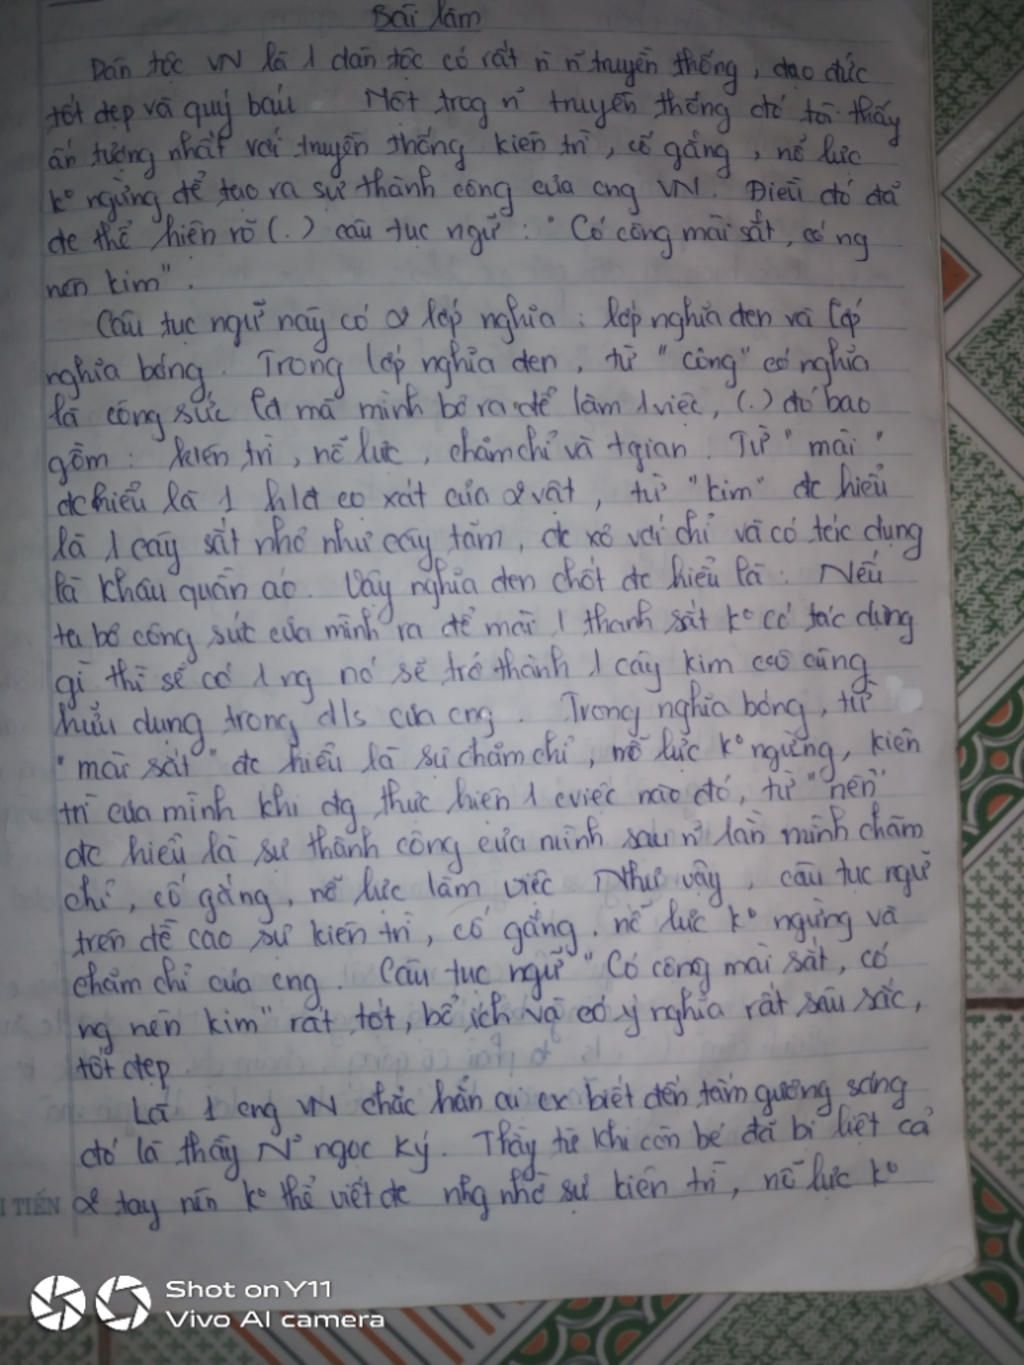 Bài làm
Dân tộc VN là 1 dân tộc có rất n² n² truyền thống, đạo đức
tốt đẹp và quý báu Một trog n² truyền thống đó tôi thấy
ấn tượng nhất với truyền thống kiên trì, cố gắng, nổ lực
k° ngừng để tạo ra sự thành công của cng VN. Điều đó đã
đc thể hiện rõ (.) câu tục ngữ: "Có công mài sắt, có ng
nên kim".
Câu tục ngữ này có 2 lớp nghĩa: lớp nghĩa đen và lớp
nghĩa bóng. Trong lớp nghĩa đen, từ "công" có nghĩa
là công sức mà mình bỏ ra để làm 1 việc, (.) đó bao
gồm: kiên trì, nổ lực, chăm chỉ và tgian. Từ "mài"
đc hiểu là 1 hđ cọ xát của 2 vật, từ "kim" đc hiểu
là 1 cây sắt nhỏ như cây tăm, đc xỏ với chỉ và có tác dụng
là khâu quần áo. Vậy nghĩa đen chốt đc hiểu là: Nếu
ta bỏ công sức của mình ra để mài 1 thanh sắt k° có tác dụng
gì thì sẽ có 1 ng nó sẽ trở thành 1 cây kim vô cùng
hữu dụng trong đ/s của cng. Trong nghĩa bóng, từ
"mài sắt" đc hiểu là sự chăm chỉ, nổ lực k° ngừng, kiên
trì của mình khi đg thực hiện 1 cviệc nào đó, từ "nên"
đc hiểu là sự thành công của mình sau n² lần mình chăm
chỉ, cố gắng, nổ lực làm việc Như vậy, câu tục ngữ
trên đề cao sự kiên trì, cố gắng, nổ lực k° ngừng và
chăm chỉ của cng. Câu tục ngữ "Có công mài sắt, có
ng nên kim" rất tốt, bổ ích và có ý nghĩa rất sâu sắc,
tốt đẹp.
Là 1 cng VN chắc hẳn ai cx biết đến tấm gương sáng
đó là thầy N² ngọc Ký. Thầy từ khi còn bé đã bị liệt cả
2 tay nên k° thể viết đc nhg nhờ sự kiên trì, nổ lực k°
I TIẾN
Shot on Y11
Vivo AI camera